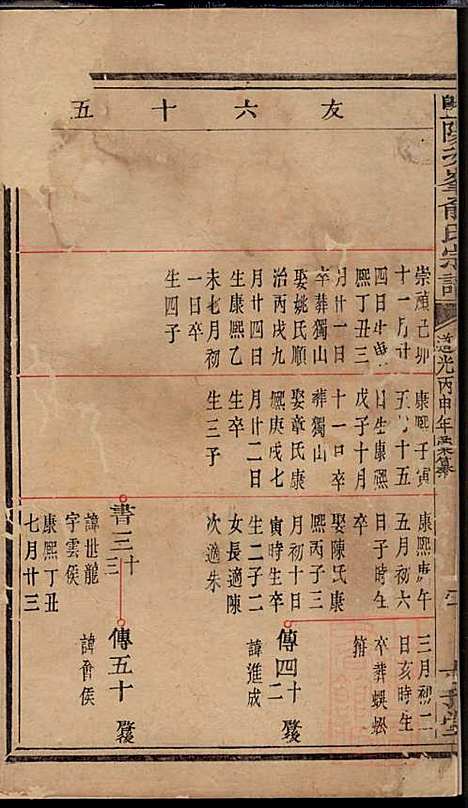 友六十五
暨陽次峯俞氏宗譜
道光丙申年重纂
崇禎己卯
十一月廿
四日生康
熙丁丑三
月廿一日
卒葬獨山
娶姚氏順
治丙戌九
月廿四日
生康熙乙
未七月初
一日卒
生四子
康熙壬寅
五月十五
日生康熙
戊子十月
十一日卒
葬獨山
娶章氏康
熙庚戌七
月廿二日
生卒
生三子
康熙庚午
五月初六
日子時生
卒
娶陳氏康
熙丙子三
月初十日
寅時生卒
生二子二
女長適陳
次適朱
書三十三
諱世龍
字雲侯
康熙丁丑
七月廿三
三月初二
日亥時生
卒葬蜈蚣
箝
傳四十二
諱進成
傳五十 發
諱會侯